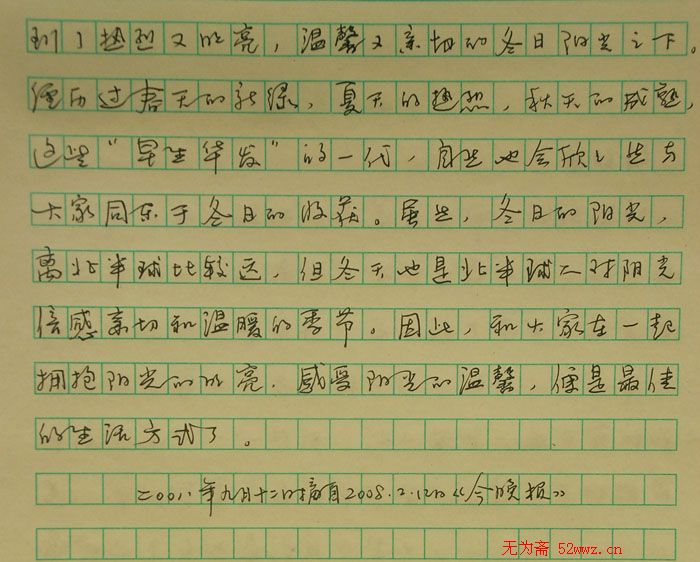 到了热烈又明亮，温馨又亲切的冬日阳光之下。
经历过春天的新绿，夏天的热烈，秋天的成熟，
这些“早生华发”的一代，自然也会欣欣然与
大家同乐于冬日的收获。虽然，冬日的阳光，
离北半球比较远，但冬天也是北半球人对阳光
倍感亲切和温暖的季节。因此，和大家在一起
拥抱阳光的明亮，感受阳光的温馨，便是最佳
的生活方式了。
年九月十二日摘自2008.2.12日《今晚报》
无为斋 52wwz.cn